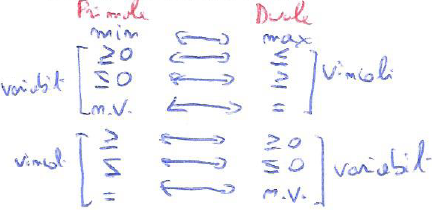 Primale Duale
min ⟺ max
variabili ≥0 ⟺ ≤ vincoli
≤0 ⟺ ≥
n.v. ⟺ =
vincoli ≥ ⟺ ≥0 variabili
≤ ⟺ ≤0
= ⟺ n.v.